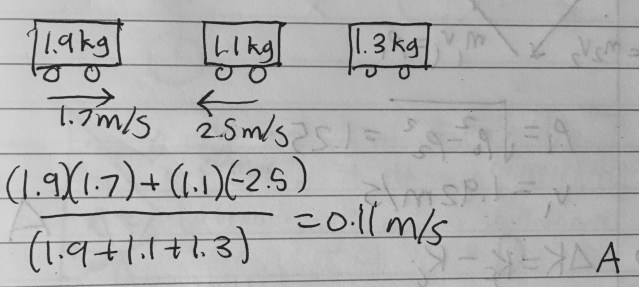 1.9kg 1.1kg 1.3kg
1.7m/s 2.5m/s
(1.9)(1.7)+(1.1)(-2.5)
(1.9+1.1+1.3)
=0.11m/s
A